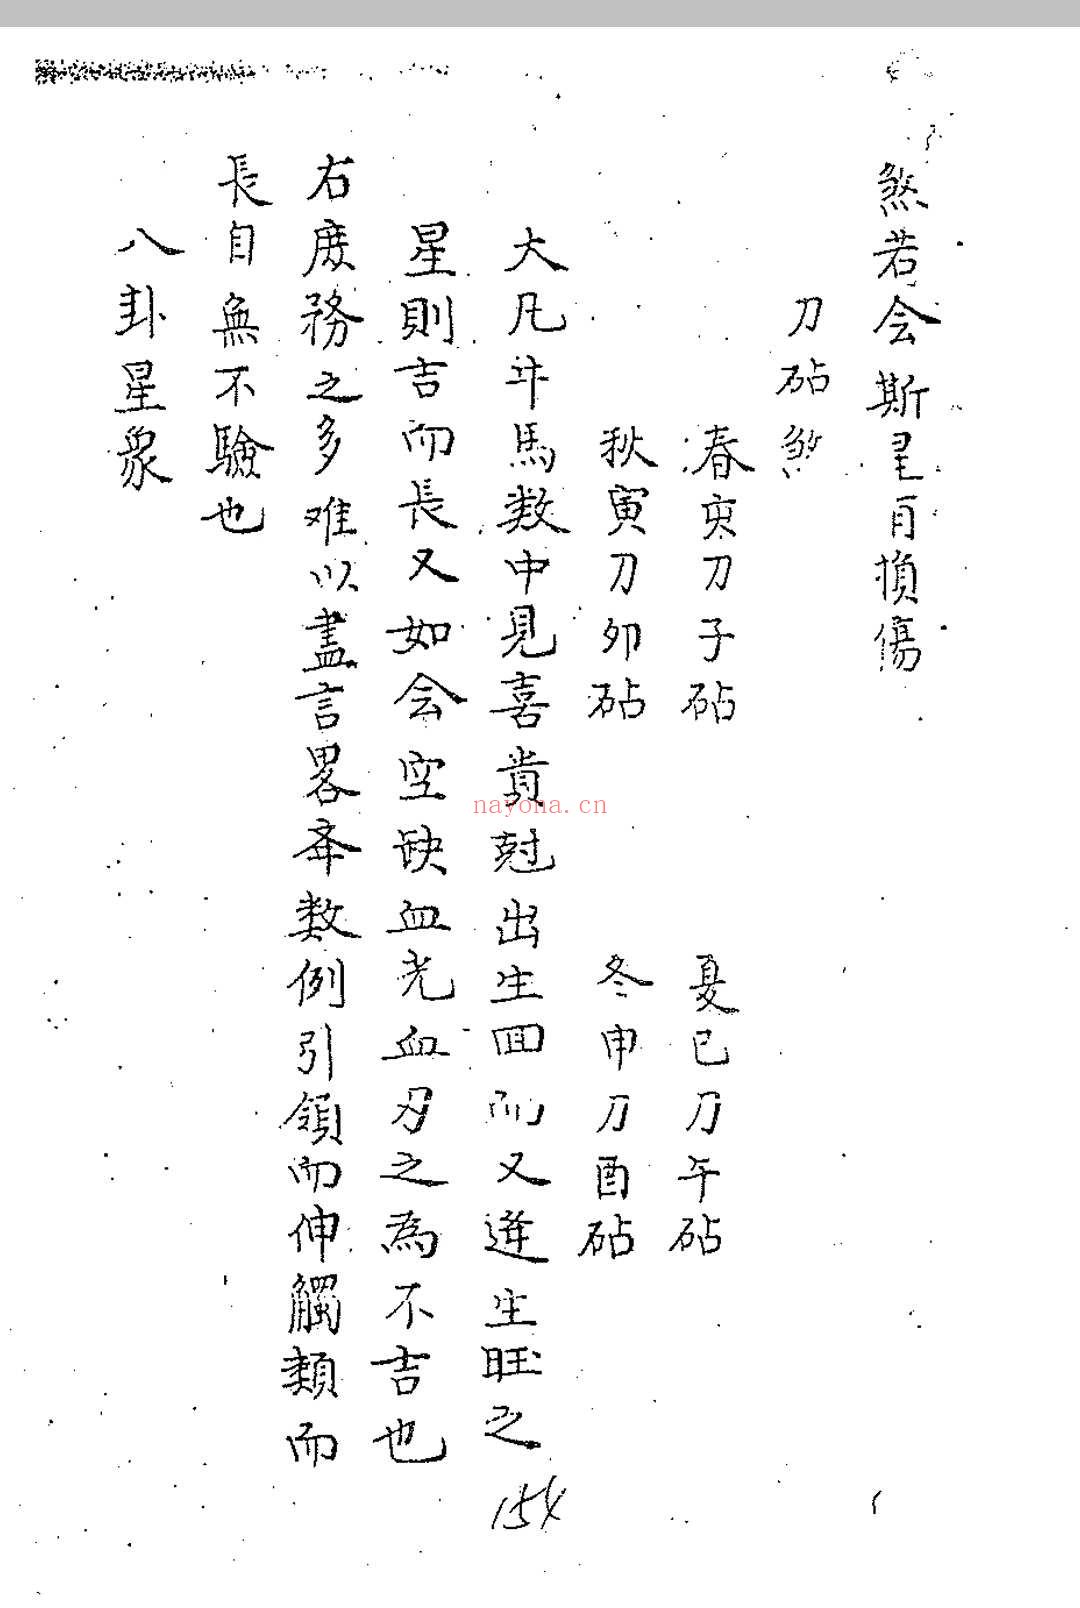 煞若会斯星自損傷
刀砧煞
春亥刀子砧
夏巳刀午砧
秋寅刀卯砧
冬申刀酉砧
大凡斗馬数中見喜貴尅出生回而又逢生旺之
星則吉而長又如会空缺血光血刃之為不吉也
右度務之多难以盡言畧夲数例引領而伸觸類而
長自無不驗也
八卦星象
154
nayona.cn